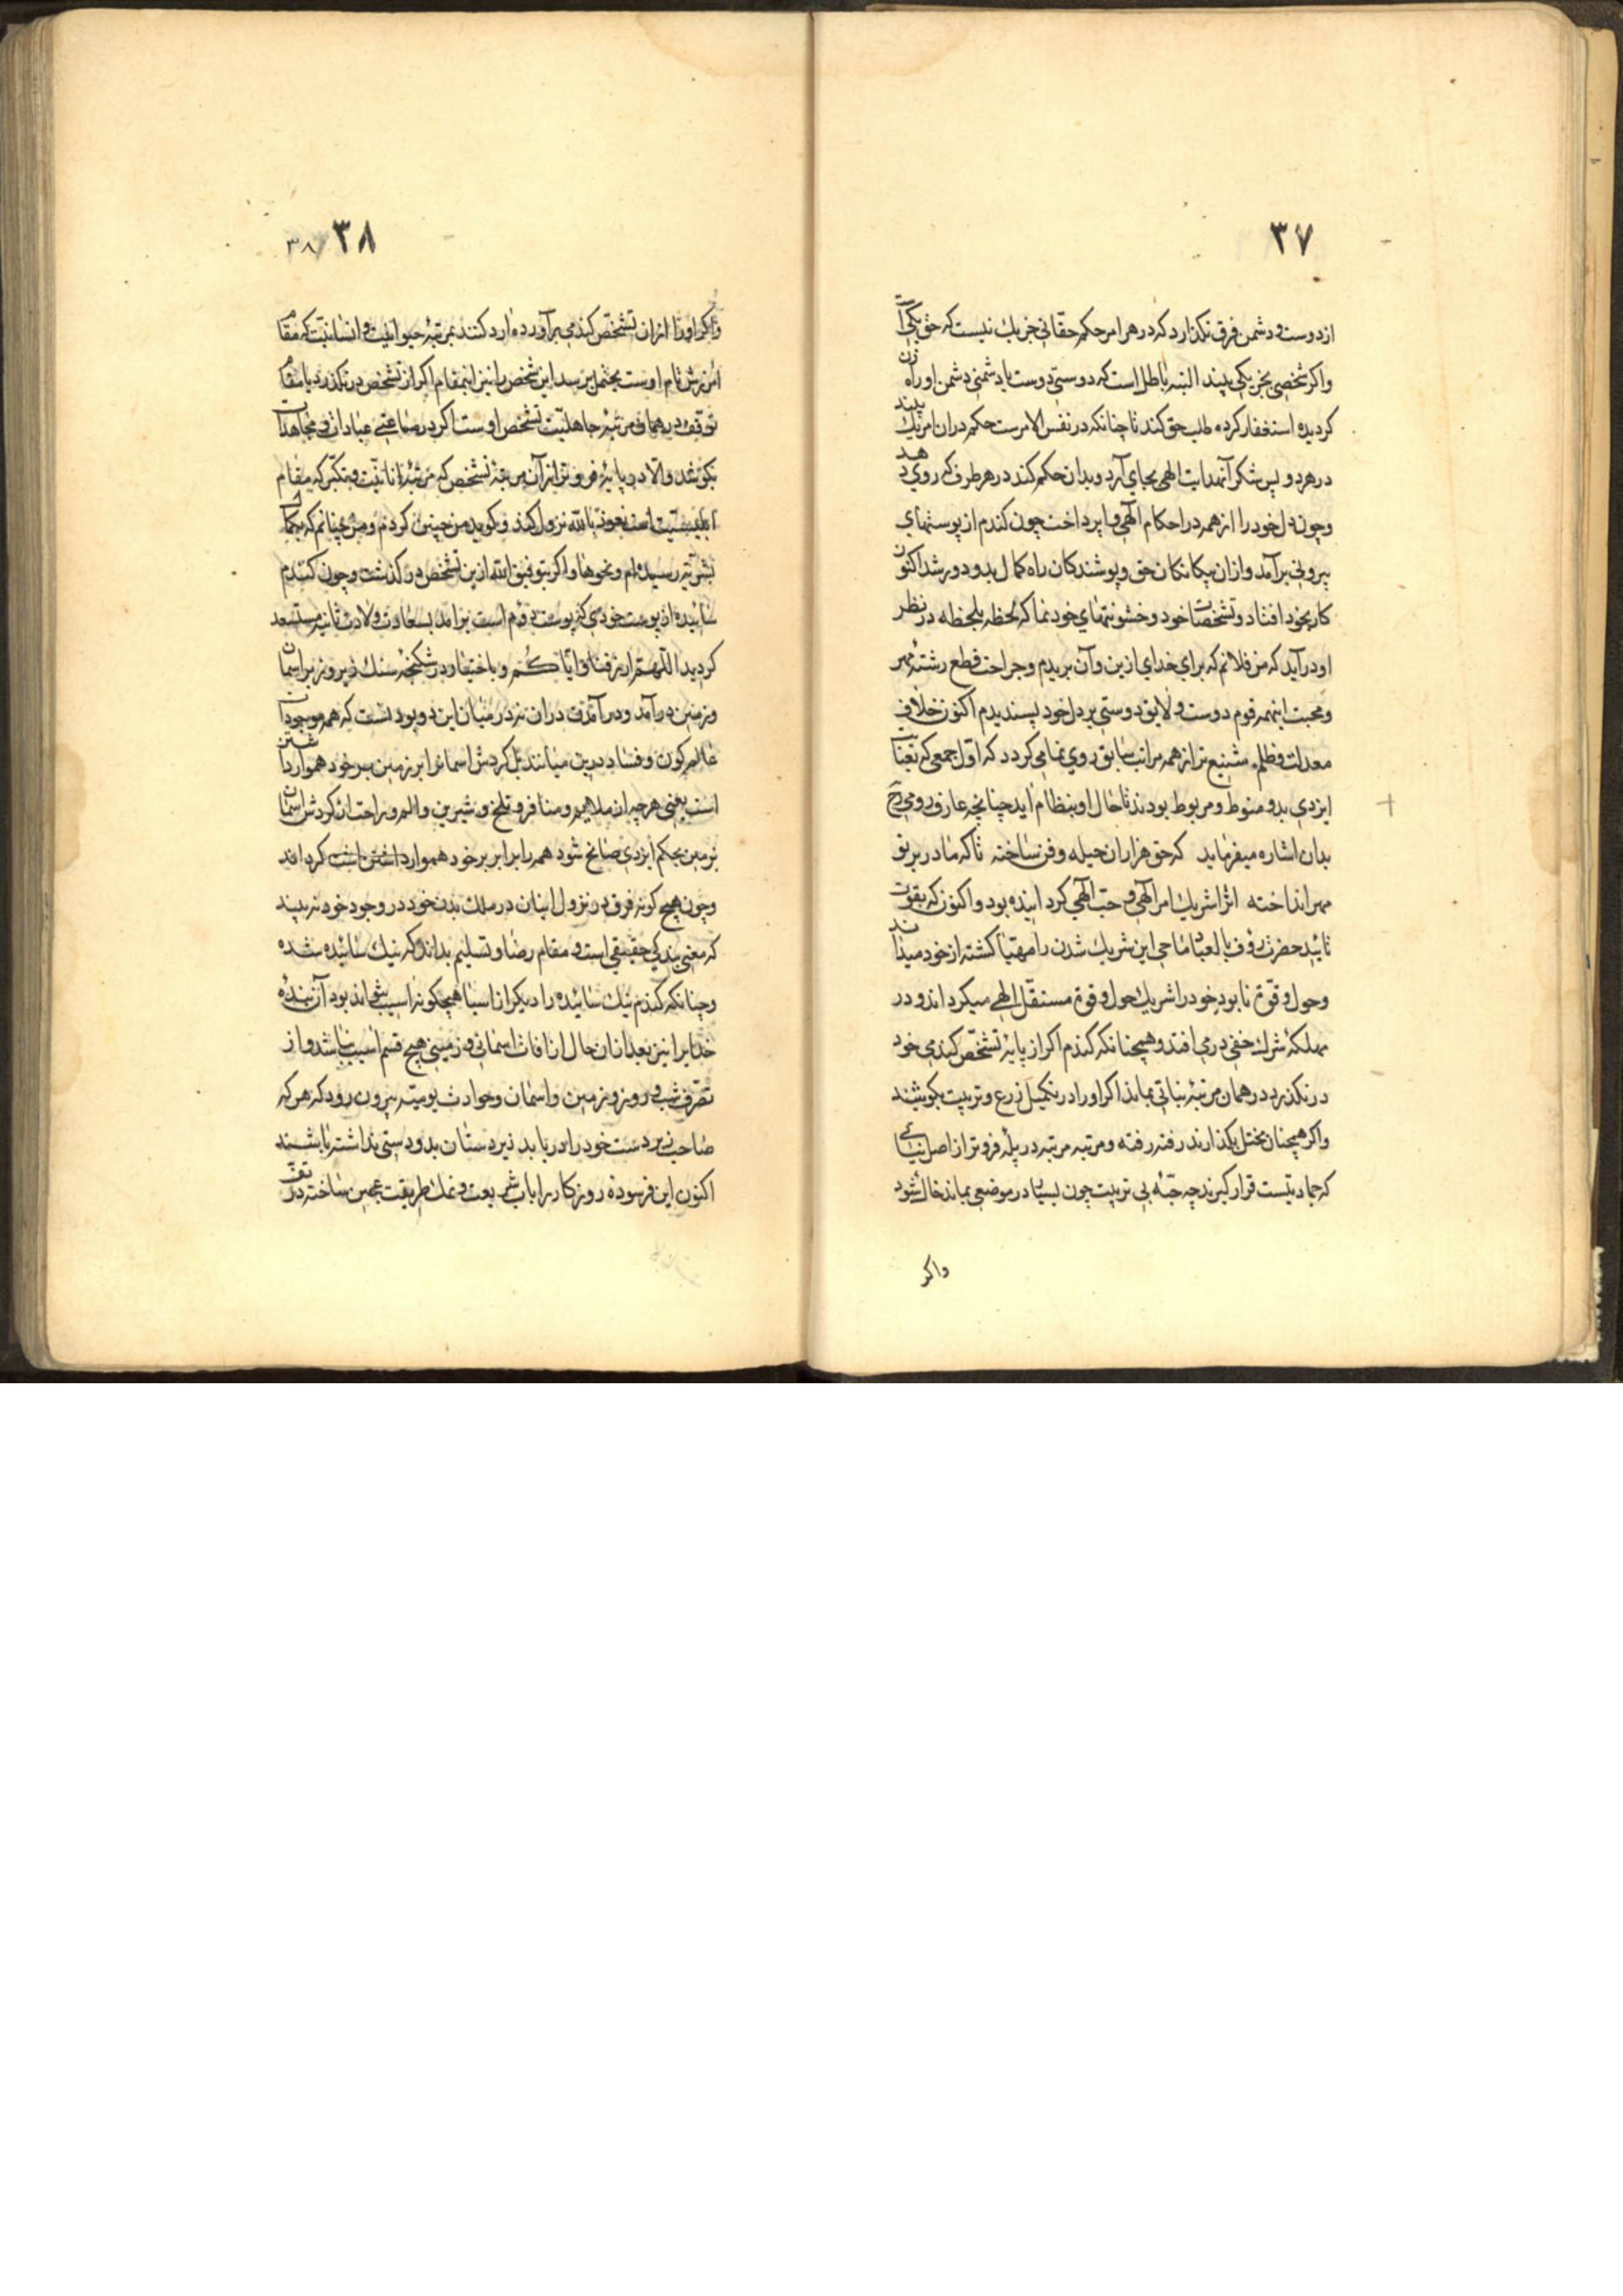 ۳۷
از دوست و دشمن فرق نکذارد که در هر امر حکم حقانی جز یك نیست که حق یکی است
واکر شخصی بجز یکی بیند البته باطل است که دوستی دوست یا دشمنی دشمن او را راه زن
کردیده استغفار کرده طلب حق کند تا چنانکه در نفس الامرست حکم در ان امر یك بیند
در هر دو پس شکر آنهدایت الهی بجای آرد و بدان حکم کند در هر طرف که روی دهد
وچون دل خود را از همه در احکام الهی وا پرداخت چون کندم از پوستهای
بیرونی برآمد و از ان بیکانکان حق و پوشندکان راه کمال بدو دور شد اکنون
کار بخود افتاد و تشخصات خود و خشونتهای خود نماکه لحظه بلحظه در نظر
او درآید که من فلانم که برای خدای ازین و آن بریدم و جراحت قطع رشتۀ مهر
و محبت اینهمه قوم دوست و لایق دوستی بر دل خود پسندیدم اکنون خلاف
معدلت و ظلم شنیع تر از همه مراتب سابق روی نما می کردد که اول جمعی که بعنایت
ایزدی بدو منوط و مربوط بودند تا حال او بنظام اید چنانچه عارف رومی رح
بدان اشاره میفرماید که حق هزاران حیله و فن ساخته تا که مادر بر تو
مهر انداخته انرا شریك امر الهی و حب الهی کردانیده بود و اکنون که بقوت
تایید حضرت رؤف بالعباد ماحی این شریك شدن را مهیا کشته از خود میداند
وحول و قوۀ نابود خود را شریك حول و قوۀ مستقل الهی میکرداند و در
مهلکۀ شرك خفی در می افتد و همچنانکه کندم اکر از پایۀ تشخص کندمی خود
در نکذرد در همان مرتبۀ نباتی بماند اکر او را در تکمیل زرع و تربیت بکوشند
واکر همچنان مختل بکذارند رفته رفته و مرتبه مرتبه در پلۀ فروتر از اصل نباتی
که جمادیتست قرار کیرند چه حبّۀ بی تربیت چون بسیار در موضعی بماند خاك شود
واکر
۳۸ ۳۸
واکر او را از ان تشخص کندمی برآورده وارد کنند بمرتبۀ حیوانیت و انسانیت که مقام
توقف در همان مرتبۀ جاهلیت تشخص اوست اکر در صناعتی عبادات و مجاهدات
بکوشد والا در پایۀ فروتر از آن مرتبۀ تشخص که مرتبۀ انانیت و تکبر که مقام
ابلیسیت است نعوذ بالله نزول کند و کوید من چنین کردم و من چنانم که بکمال
بشریت رسیده ام و نحوها و اکر بتوفیق الله ازین تشخص در کذشت و چون کندم
سائیده از پوست خودی که پوست دوم است برآمد بسعادت ولادت ثانیه مستسعد
کردید اللهم ارزقنا و ایاکم و باختیار در شکنجۀ سنك دیروز بر اسمان
و زمین درآمد و درآمدن در ان نیز در میان این دو بود نست که همه موجودات
عالم کون و فساد درین میانند بل کردش اسمانرا بر زمین سر خود هموار داشتن
است یعنی هر چه از ملایم و منافر و تلخ و شیرین و الم و راحت از کردش اسمان
بر زمین بحکم ایزدی سانح شود همه را برابر بر خود هموار داشتن است کرداند
وچون هیچ کونه فرق در نزول اینان در ملك بدن خود در وجود خود نه بیند
که معنی بندکی حقیقی است و مقام رضا و تسلیم بداند که نیك سائیده شده
وچنانکه کندم نیك سائیده را دیکر از اسیا هیچکونه اسیب نتواند بود آن بندۀ
خدایرا نیز بعد از ان حال از افات اسمانی و زمینی هیچ قسم اسیب نباشد و از
تصرف شب و روز و زمین و اسمان و حوادث یومیه بیرون رود که هر که
صاحب زبردست خود را دریابد زیردستان بدو دستی نداشته باشند
اکنون این فرسودۀ روزکار را باب شریعت و نمك طریقت عجین ساخته در